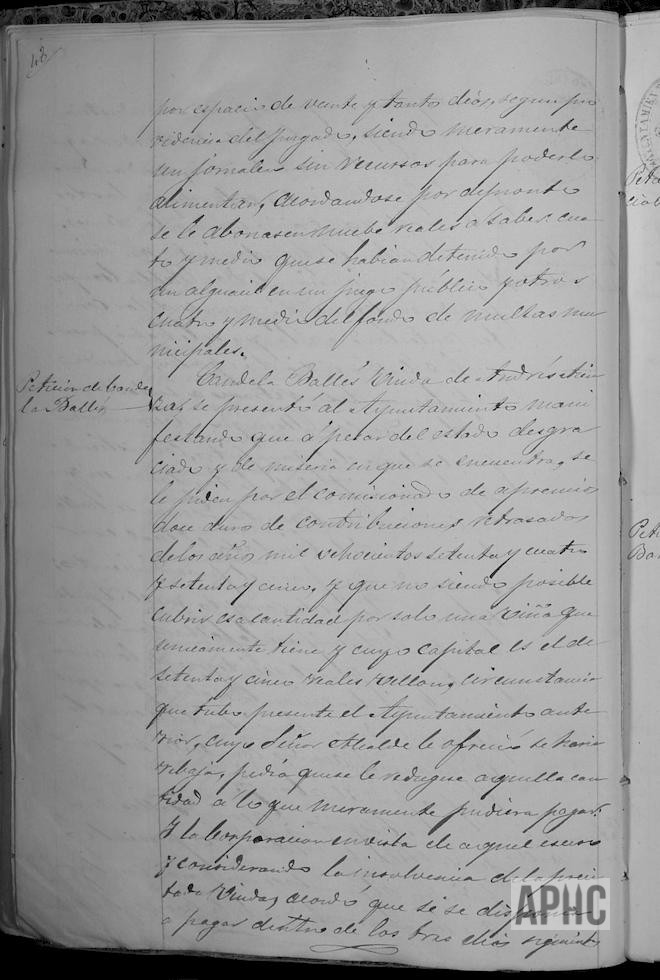 48
por espacio de veinte y tantos dias, segun pro
videncia del Juzgado, siendo meramente
un jornalero sin recursos para poderlo
alimentar, acordandose por de pronto
se le abonasen nuebe reales a saber: cua
tro y medio que se habian detenido por
un alguacil en un juego público y otros
cuatro y medio del fondo de multas mu
nicipales.
Peticion de Cande
la Ballés
Candela Ballés Viuda de Andrés
se presentó al Ayuntamiento mani
festando que á pesar del estado desgra
ciado y de miseria en que se encuentra, se
le piden por el comisionado de apremios
doce duros de contribuciones retrasadas
de los años mil ochocientos setenta y cuatro
y setenta y cinco, y que no siendo posible
cubrir esa cantidad por solo una viña que
unicamente tiene y cuyo capital es el de
setenta y cinco reales vellon, circunstancia
que tubo presente el Ayuntamiento ante
rior, cuyo Señor Alcalde le ofreció se haria
rebaja, pedia que se le redugese aquella can
tidad á lo que meramente pudiera pagar.
Y la Corporacion en vista de aquel
y considerando la insolvencia de la preci
tada Viuda, acordó que si se disponia
a pagar dentro de los tres dias siguientes
APHC